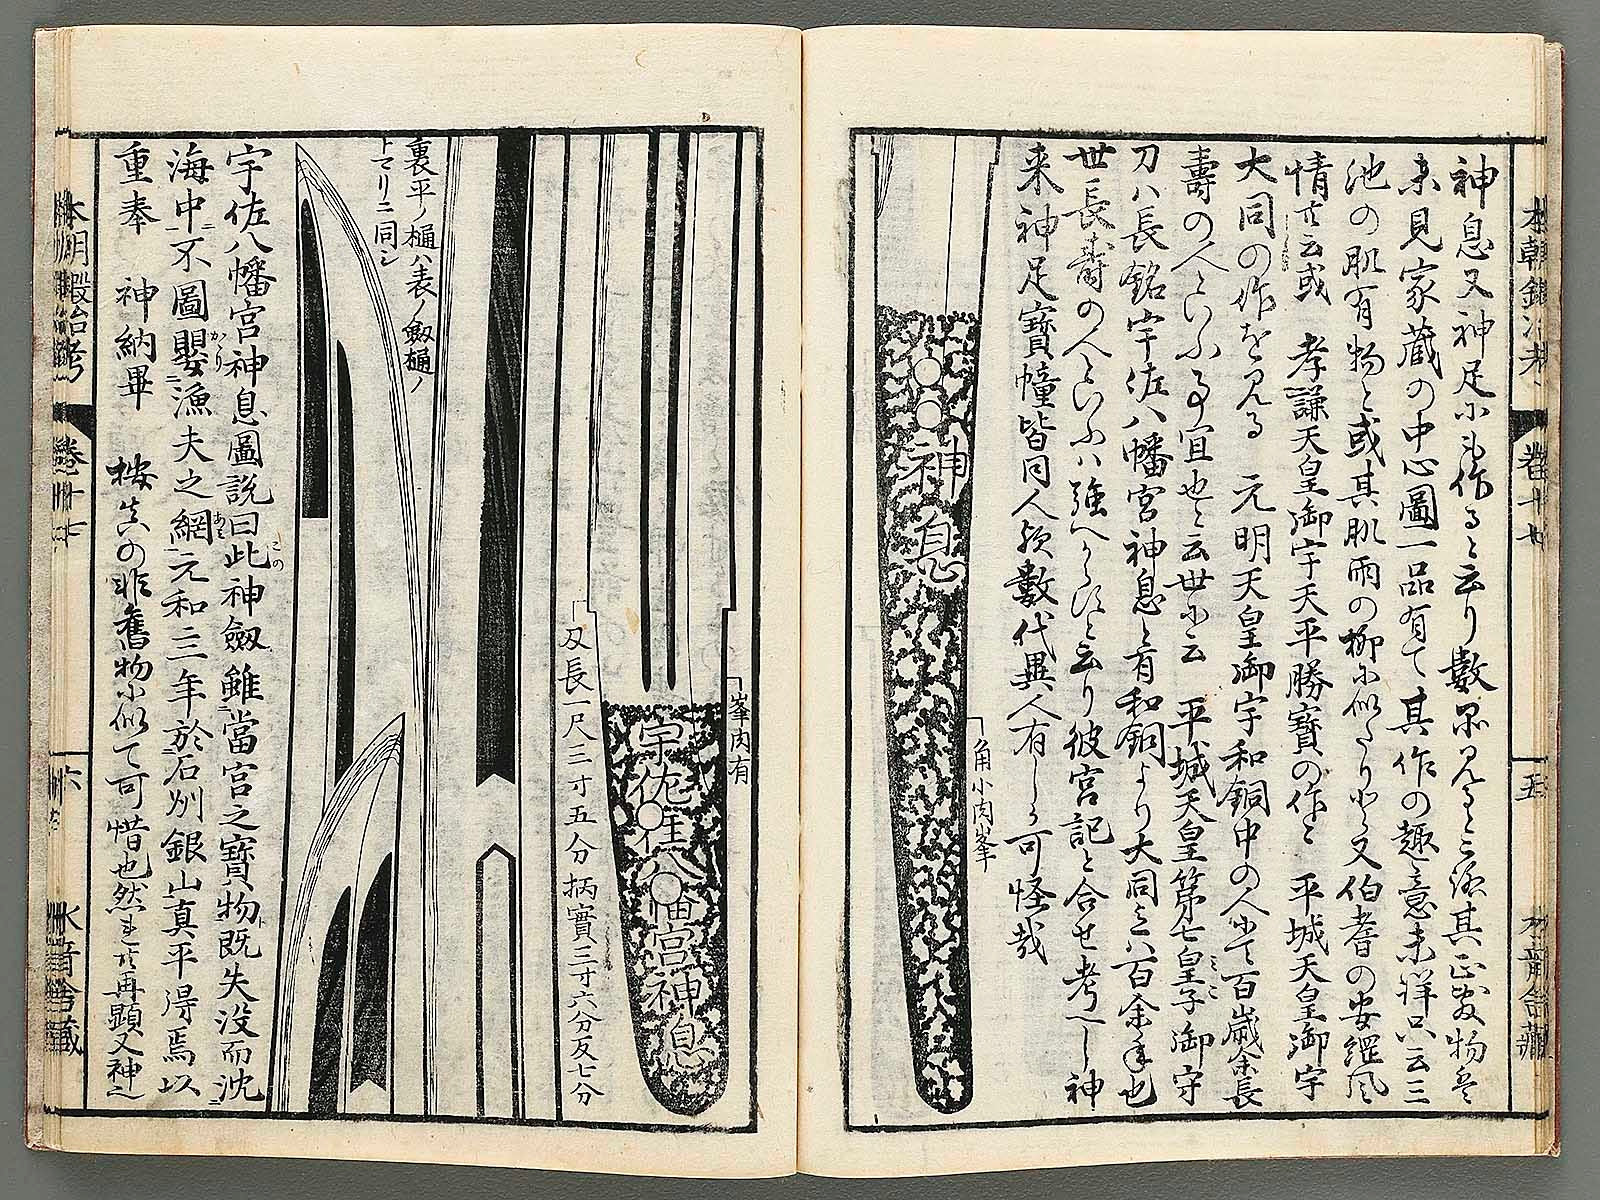 本朝鍛冶考
卷十七
五
水音舍藏
神息又神足小も作ると云り數品見ると云政其正眞物を
未見家蔵の中心圖一品有て其作の趣意未詳只云三
池の肌有物と或其肌雨の柳に似たり
又伯耆の安綱風
情有云或 孝謙天皇御宇天平勝寳の作と 平城天皇御宇
大同の作を見る 元明天皇御宇和銅中の人にて百歳余長
壽の人といふ事宜也と云世に云 平城天皇第七皇子御守
刀ハ長銘宇佐八幡宮神息と有和銅より大同ミハ百余年也
世長壽の人といふハ強へからすと云り彼宮記と合せ考へし神
来神足寳幢皆同人欤數代異人有しか可怪哉
神息
角小肉峯
峯肉有
宇佐八幡宮神息
刄長一尺三寸五分柄實三寸六分反七分
裏平ノ樋ハ表ノ劔樋ノ
トマリニ同シ
宇佐八幡宮神息圖説曰此神劔雖當宮之寳物既失没而沈
海中不圖嬰漁夫之網元和三年於石州銀山真平得焉以
重奉 神納畢 按其の非舊物小似て可惜也然
再顯又神之
本朝鍛冶考
卷十七
六
水音舍藏